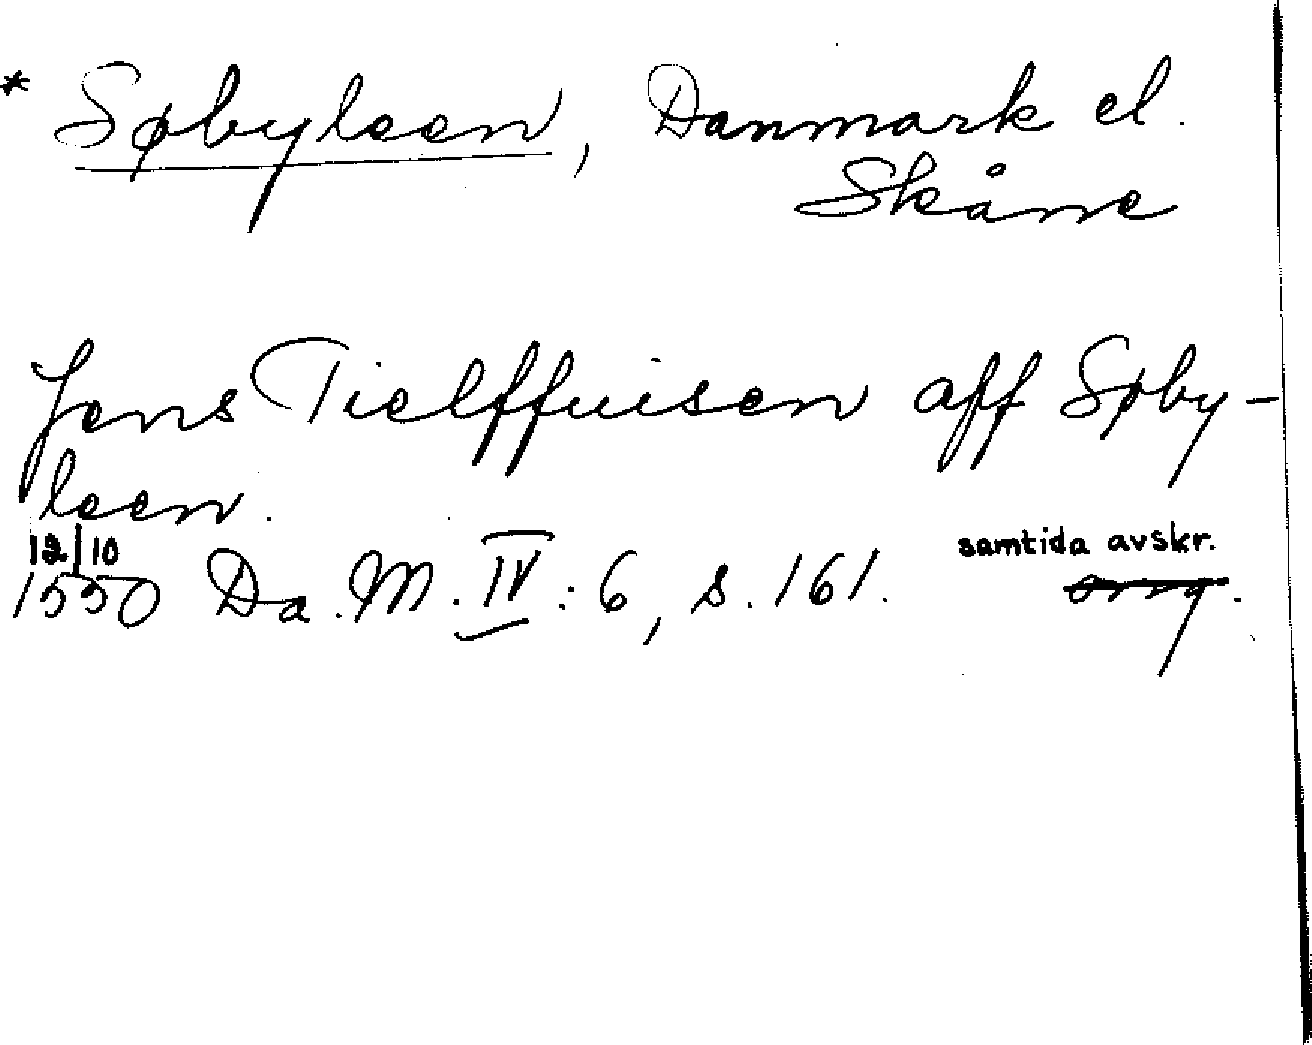 * Søbyleen, Danmark el.
Skåne
Jens Tielffuisen aff Søby-
leen.
12/10
1550 Da. M. IV: 6, s. 161.
samtida avskr.